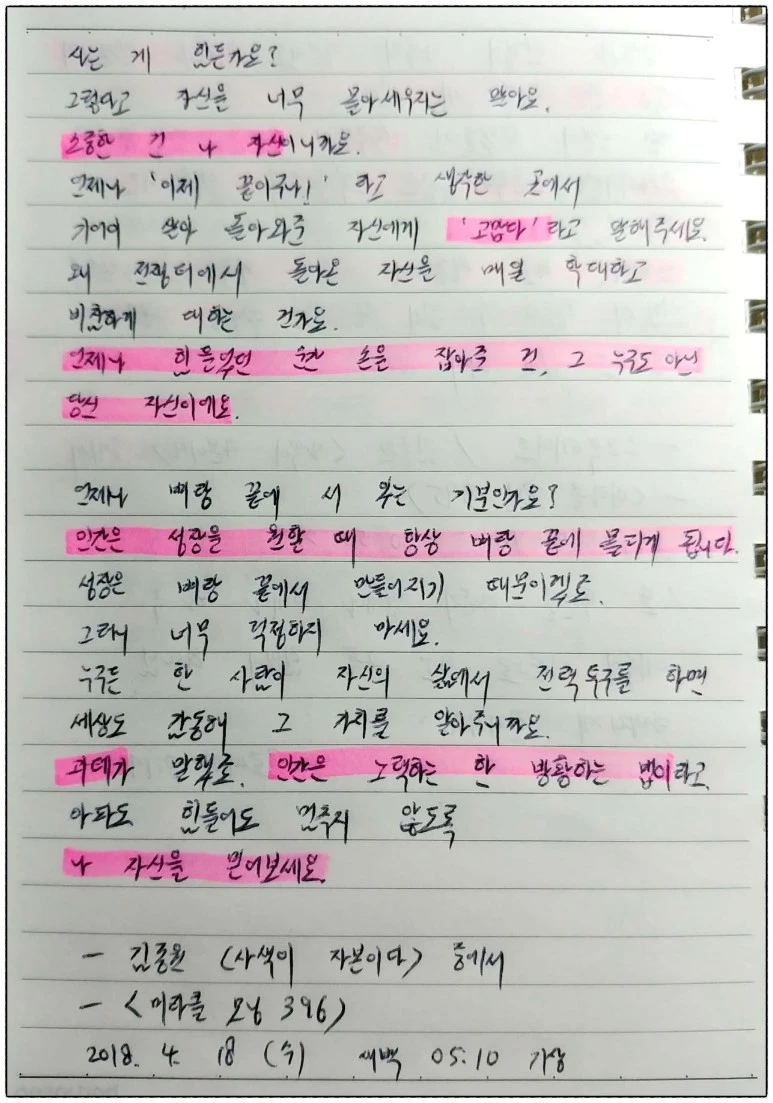 사는 게 힘든가요?
그렇다고 자신을 너무 몰아세우지는 말아요.
소중한 건 나 자신이니까요.
언제나 '이제 끝이구나!' 라고 생각한 곳에서
기어이 살아 돌아와준 자신에게 '고맙다'라고 말해주세요.
왜 전쟁터에서 돌아온 자신을 매일 학대하고
비참하게 대하는 건가요.
언제나 힘들었던 순간 손을 잡아준 건, 그 누구도 아닌
당신 자신이에요.
언제나 벼랑 끝에 서 있는 기분인가요?
인간은 성장을 원할 때 항상 벼랑 끝에 몰리게 됩니다.
성장은 벼랑 끝에서 만들어지기 때문이렉로.
그러니 너무 걱정하지 마세요.
누구든 한 사람이 자신의 삶에서 전력투구를 하면
세상도 감동해 그 가치를 알아주니까요.
괴테가 말했죠. 인간은 노력하는 한 방황하는 법이라고.
아파도 힘들어도 멈추지 않도록
나 자신을 믿어보세요.
- 김종원 <사색이 자본이다> 중에서
- <미라클 모닝 396>
2018. 4. 18 (수) 새벽 05:10 기상